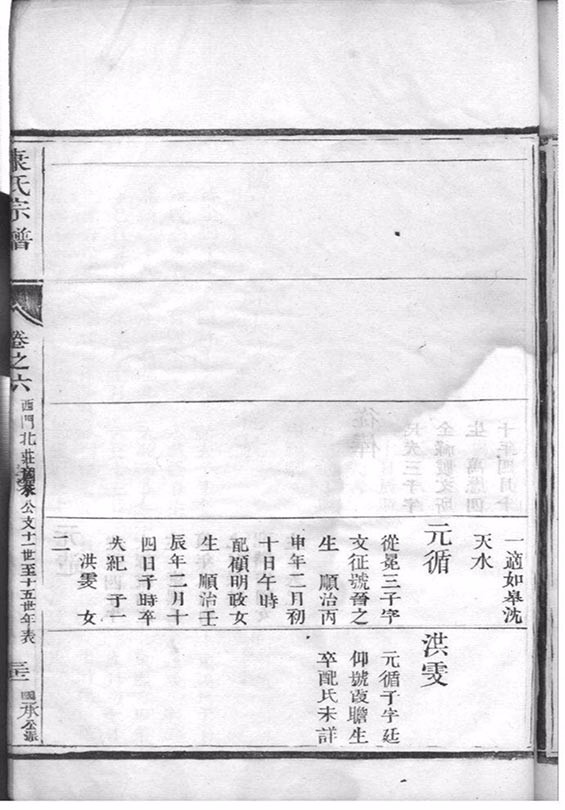 一適如皋沈
天水
元循
從冕三子字
文征號晉之
生 順治丙
申年二月初
十日午時
配顧明政女
生 順治壬
辰年二月十
四日子時卒
失紀 子一
洪雯 女
二
洪雯
元循子字廷
仰號霞瞻生
卒配氏未詳
康氏宗譜
卷之六
西門北莊 公支十一世至十五世年表